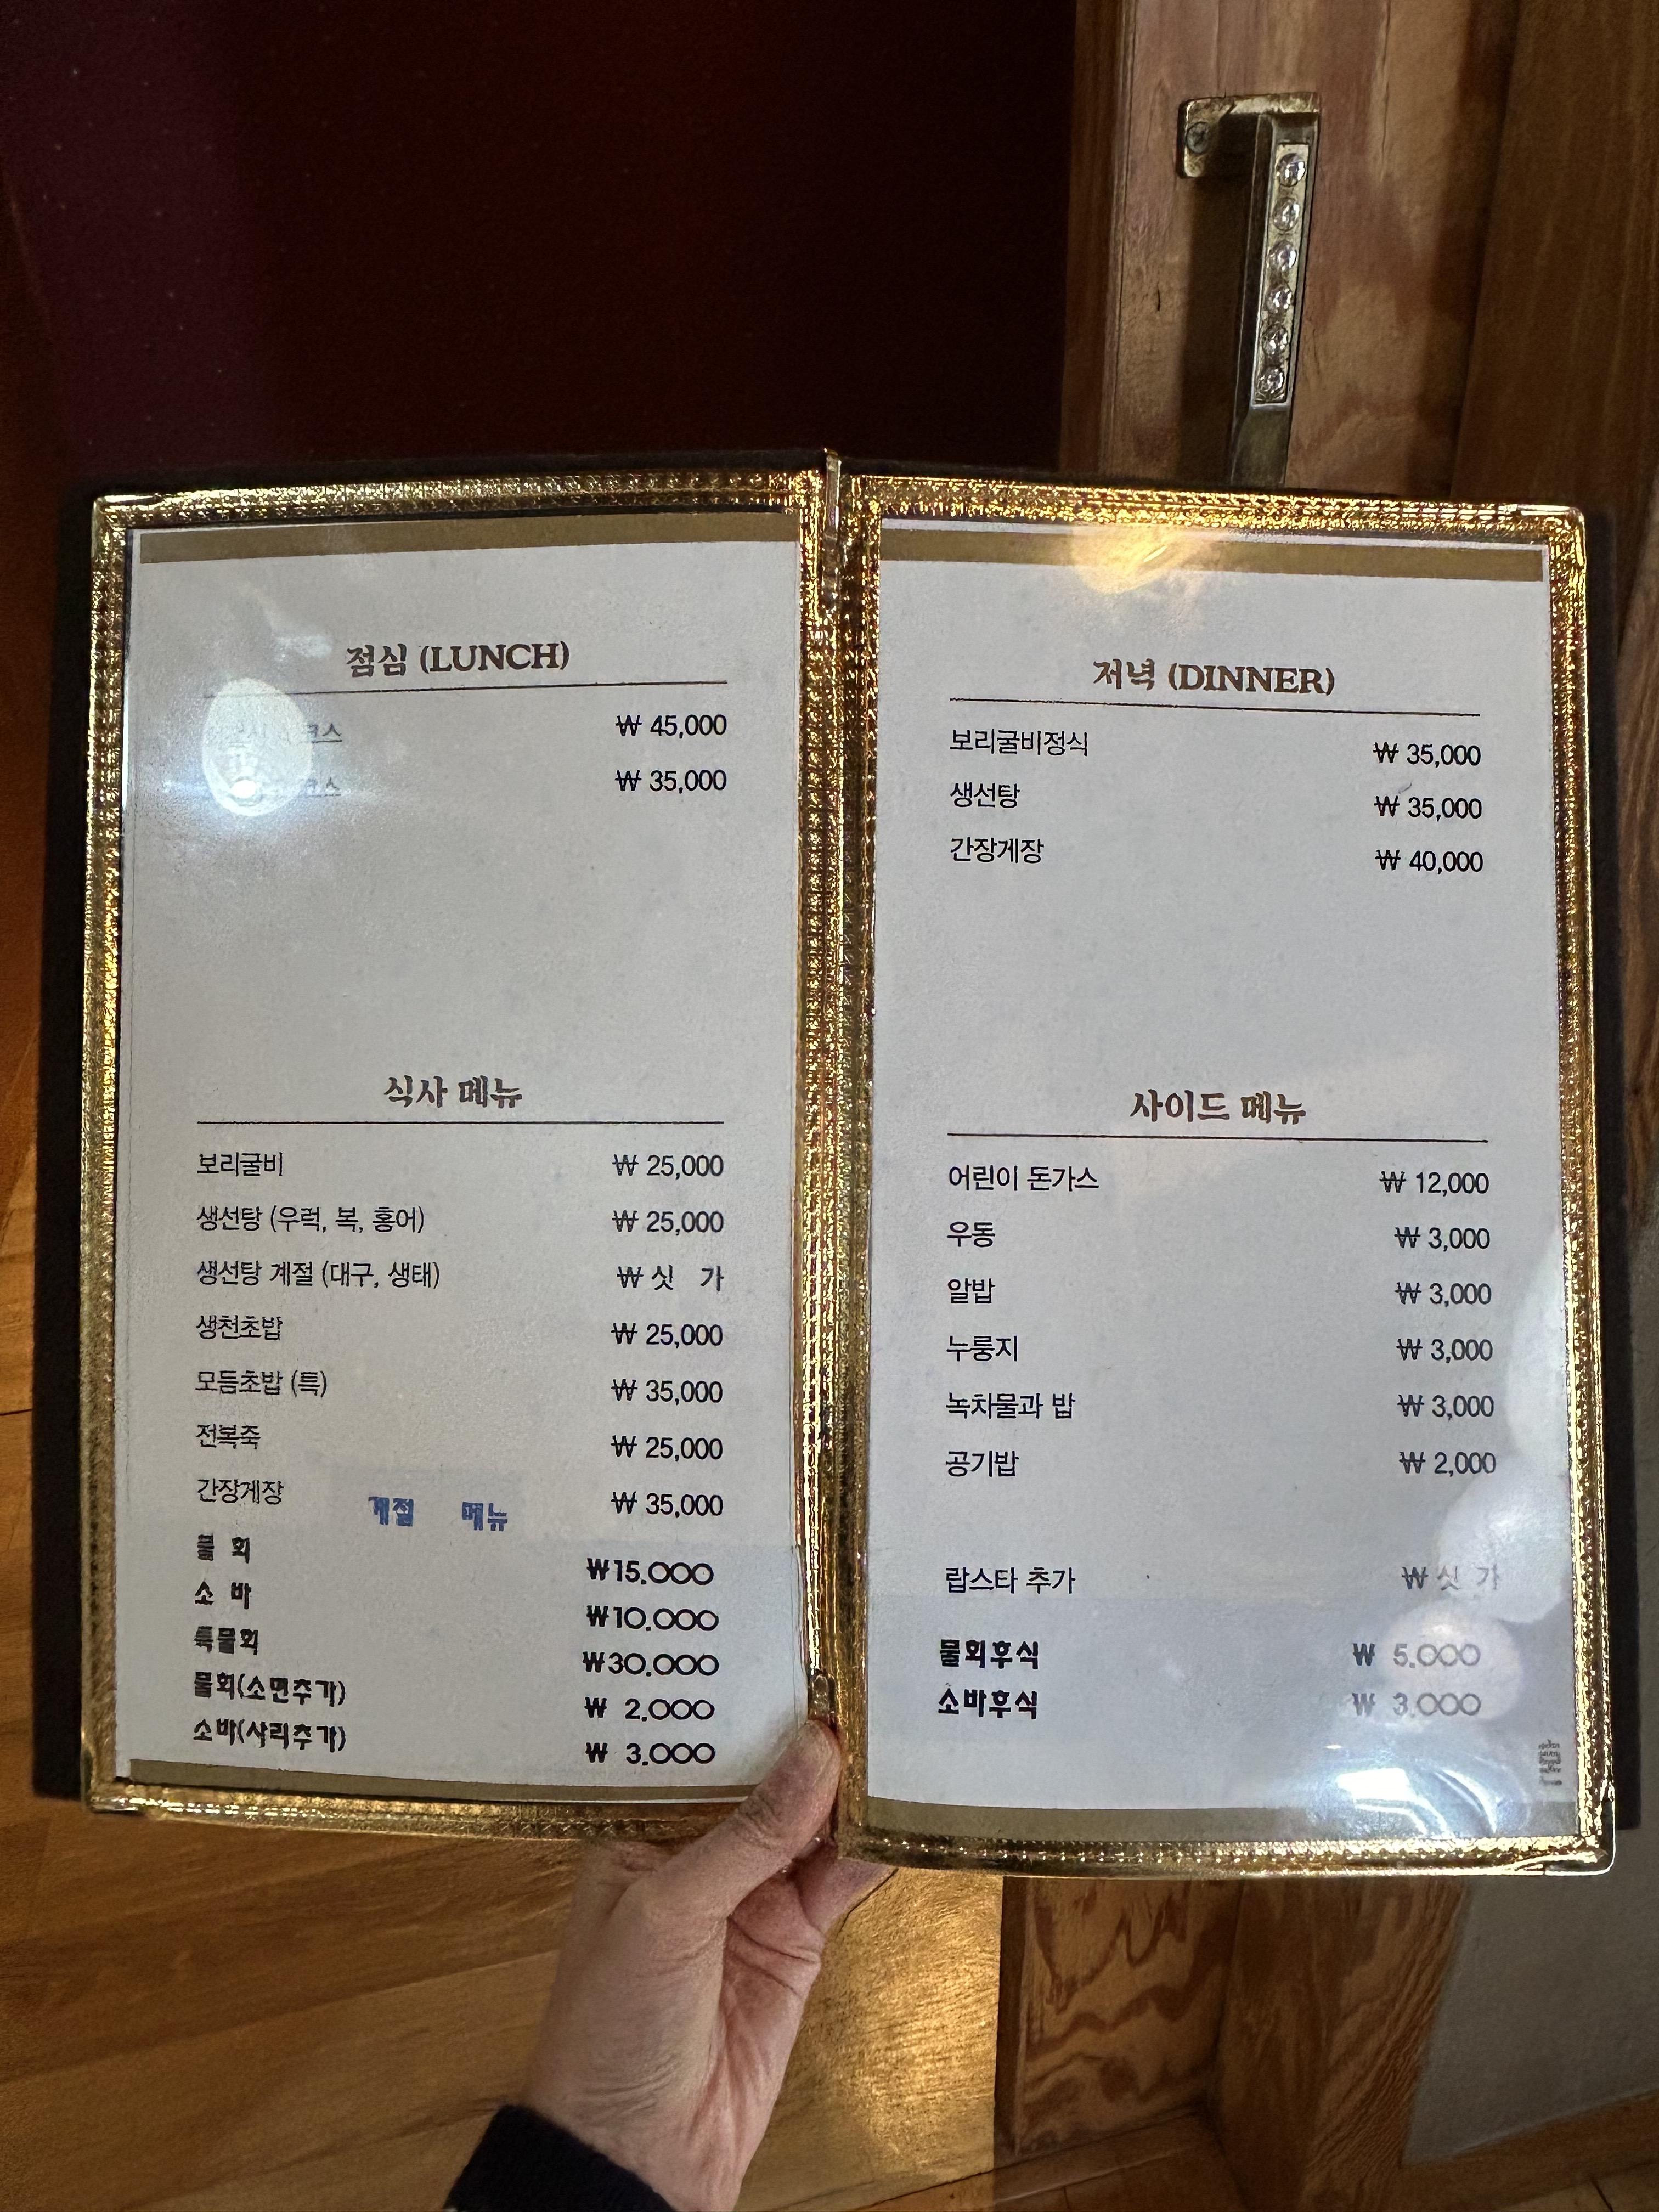 점심 (LUNCH)
코스 ₩ 45,000
코스 ₩ 35,000
식사 메뉴
보리굴비 ₩ 25,000
생선탕 (우럭, 복, 홍어) ₩ 25,000
생선탕 계절 (대구, 생태) ₩ 싯 가
생천초밥 ₩ 25,000
모듬초밥 (특) ₩ 35,000
전복죽 ₩ 25,000
간장게장 ₩ 35,000
계절 메뉴
물 회 ₩15.000
소 바 ₩10.000
특물회 ₩30.000
물회(소면추가) ₩ 2.000
소바(사리추가) ₩ 3.000
저녁 (DINNER)
보리굴비정식 ₩ 35,000
생선탕 ₩ 35,000
간장게장 ₩ 40,000
사이드 메뉴
어린이 돈가스 ₩ 12,000
우동 ₩ 3,000
알밥 ₩ 3,000
누룽지 ₩ 3,000
녹차물과 밥 ₩ 3,000
공기밥 ₩ 2,000
랍스타 추가 ₩ 싯 가
물회후식 ₩ 5.000
소바후식 ₩ 3.000